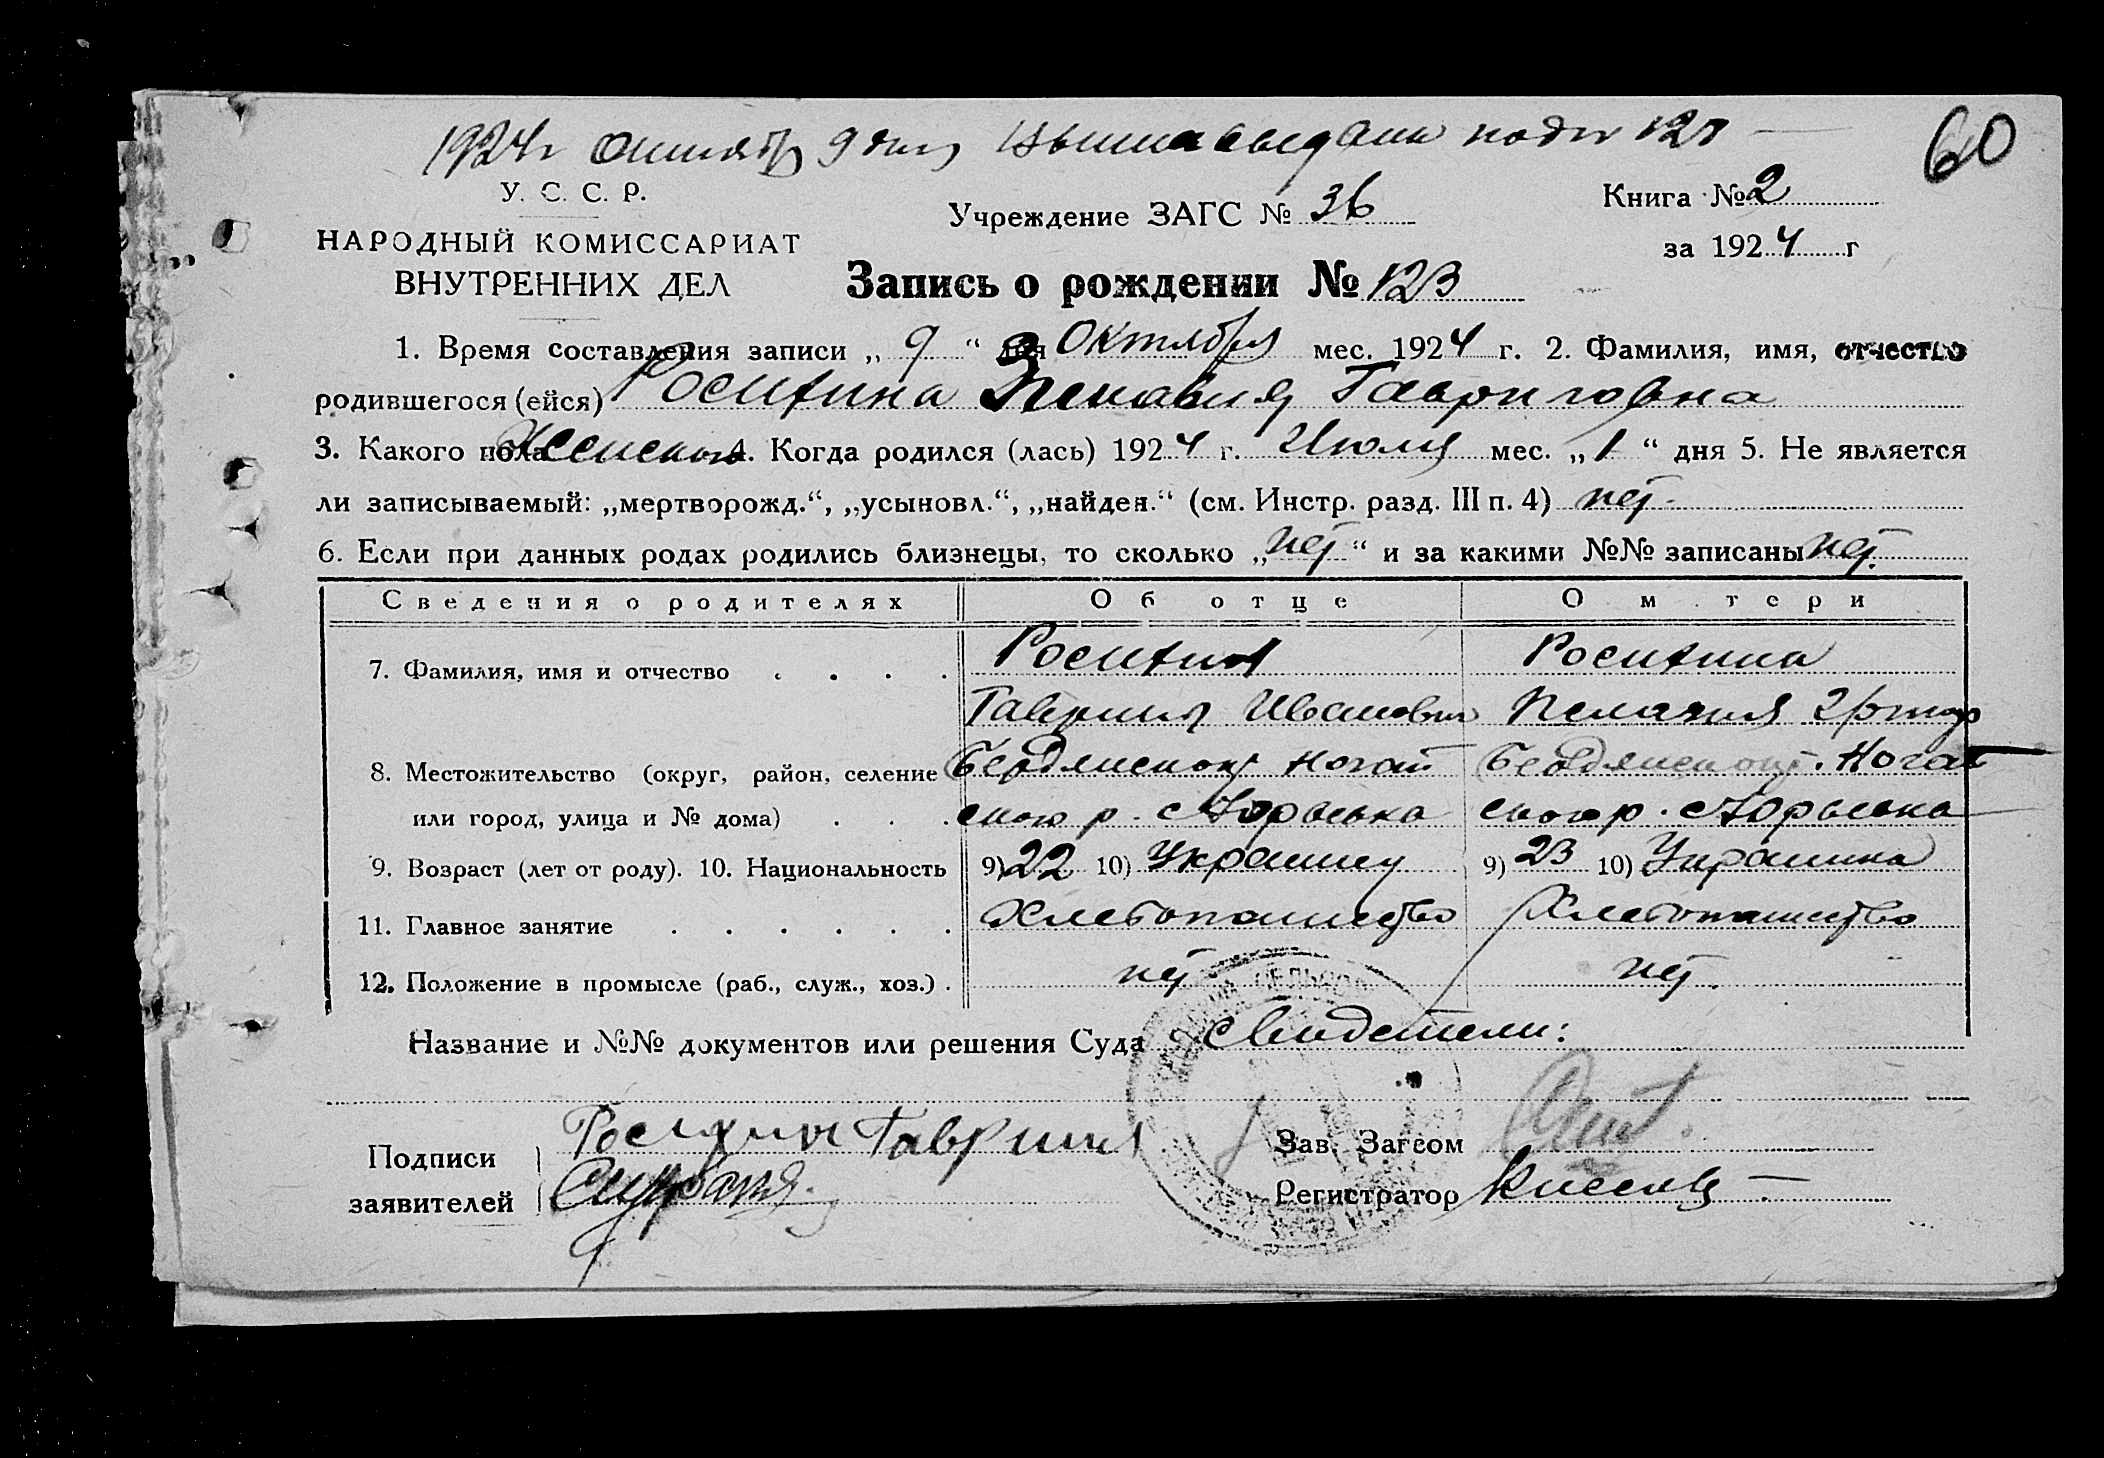 1924 г Октября 9 дня выписка выдана под № 12
60
У. С. С. Р.
НАРОДНЫЙ КОМИССАРИАТ
ВНУТРЕННИХ ДЕЛ
Учреждение ЗАГС № 36
Книга № 2
за 1924 г
Запись о рождении № 123
1. Время составления записи „ 9 “ дня Октября мес. 1924 г. 2. Фамилия, имя, отчество
родившегося (ейся) Росихина Зенавия Гавриловна
3. Какого пола Женского 4. Когда родился (лась) 1924 г. Июля мес. „ 1 “ дня 5. Не является
ли записываемый: „мертворожд.“, „усыновл.“, „найден.“ (см. Инстр. разд. III п. 4) нет.
6. Если при данных родах родились близнецы, то сколько „ нет “ и за какими №№ записаны нет.
Сведения о родителях Об отце О м тери
7. Фамилия, имя и отчество . . . . Росихин Росихина
Гавриил Иванович Пелагия
8. Местожительство (округ, район, селение Бердянского Ногай Бердянск окр. Ногай
или город, улица и № дома) . . . ского р. с ского р. с
9. Возраст (лет от роду). 10. Национальность 9) 22 10) Украинец 9) 23 10) Украинка
11. Главное занятие . . . . . . Хлебопашество Хлебопашество
12. Положение в промысле (раб., служ., хоз.) . нет нет.
Название и №№ документов или решения Суда Свидетели:
Подписи Росихин Гавриил
заявителей
Зав. Загсом
Регистратор